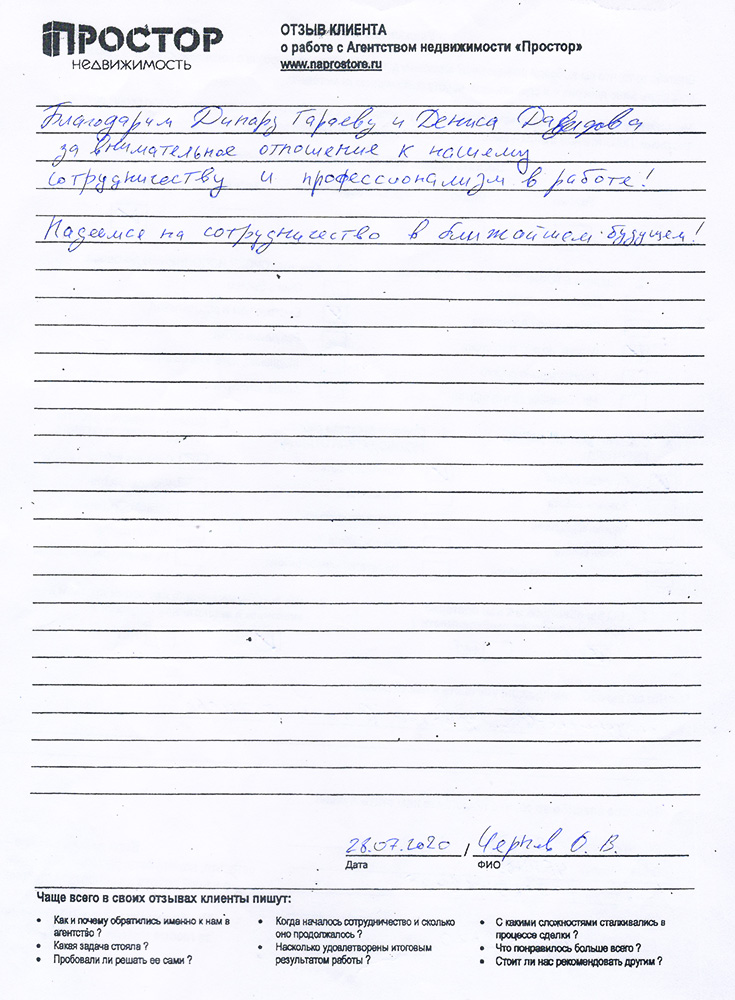 ПРОСТОР
недвижимость
ОТЗЫВ КЛИЕНТА
о работе с Агентством недвижимости «Простор»
www.naprostore.ru
Благодарим Динару Гараеву и Дениса Давыдова
за внимательное отношение к нашему
сотрудничеству и профессионализм в работе!
Надеемся на сотрудничество в ближайшем будущем!
28.07.2020 / О. В.
Дата ФИО
Чаще всего в своих отзывах клиенты пишут:
• Как и почему обратились именно к нам в
агентство ?
• Какая задача стояла ?
• Пробовали ли решать ее сами ?
• Когда началось сотрудничество и сколько
оно продолжалось ?
• Насколько удовлетворены итоговым
результатом работы ?
• С какими сложностями сталкивались в
процессе сделки ?
• Что понравилось больше всего ?
• Стоит ли нас рекомендовать другим ?